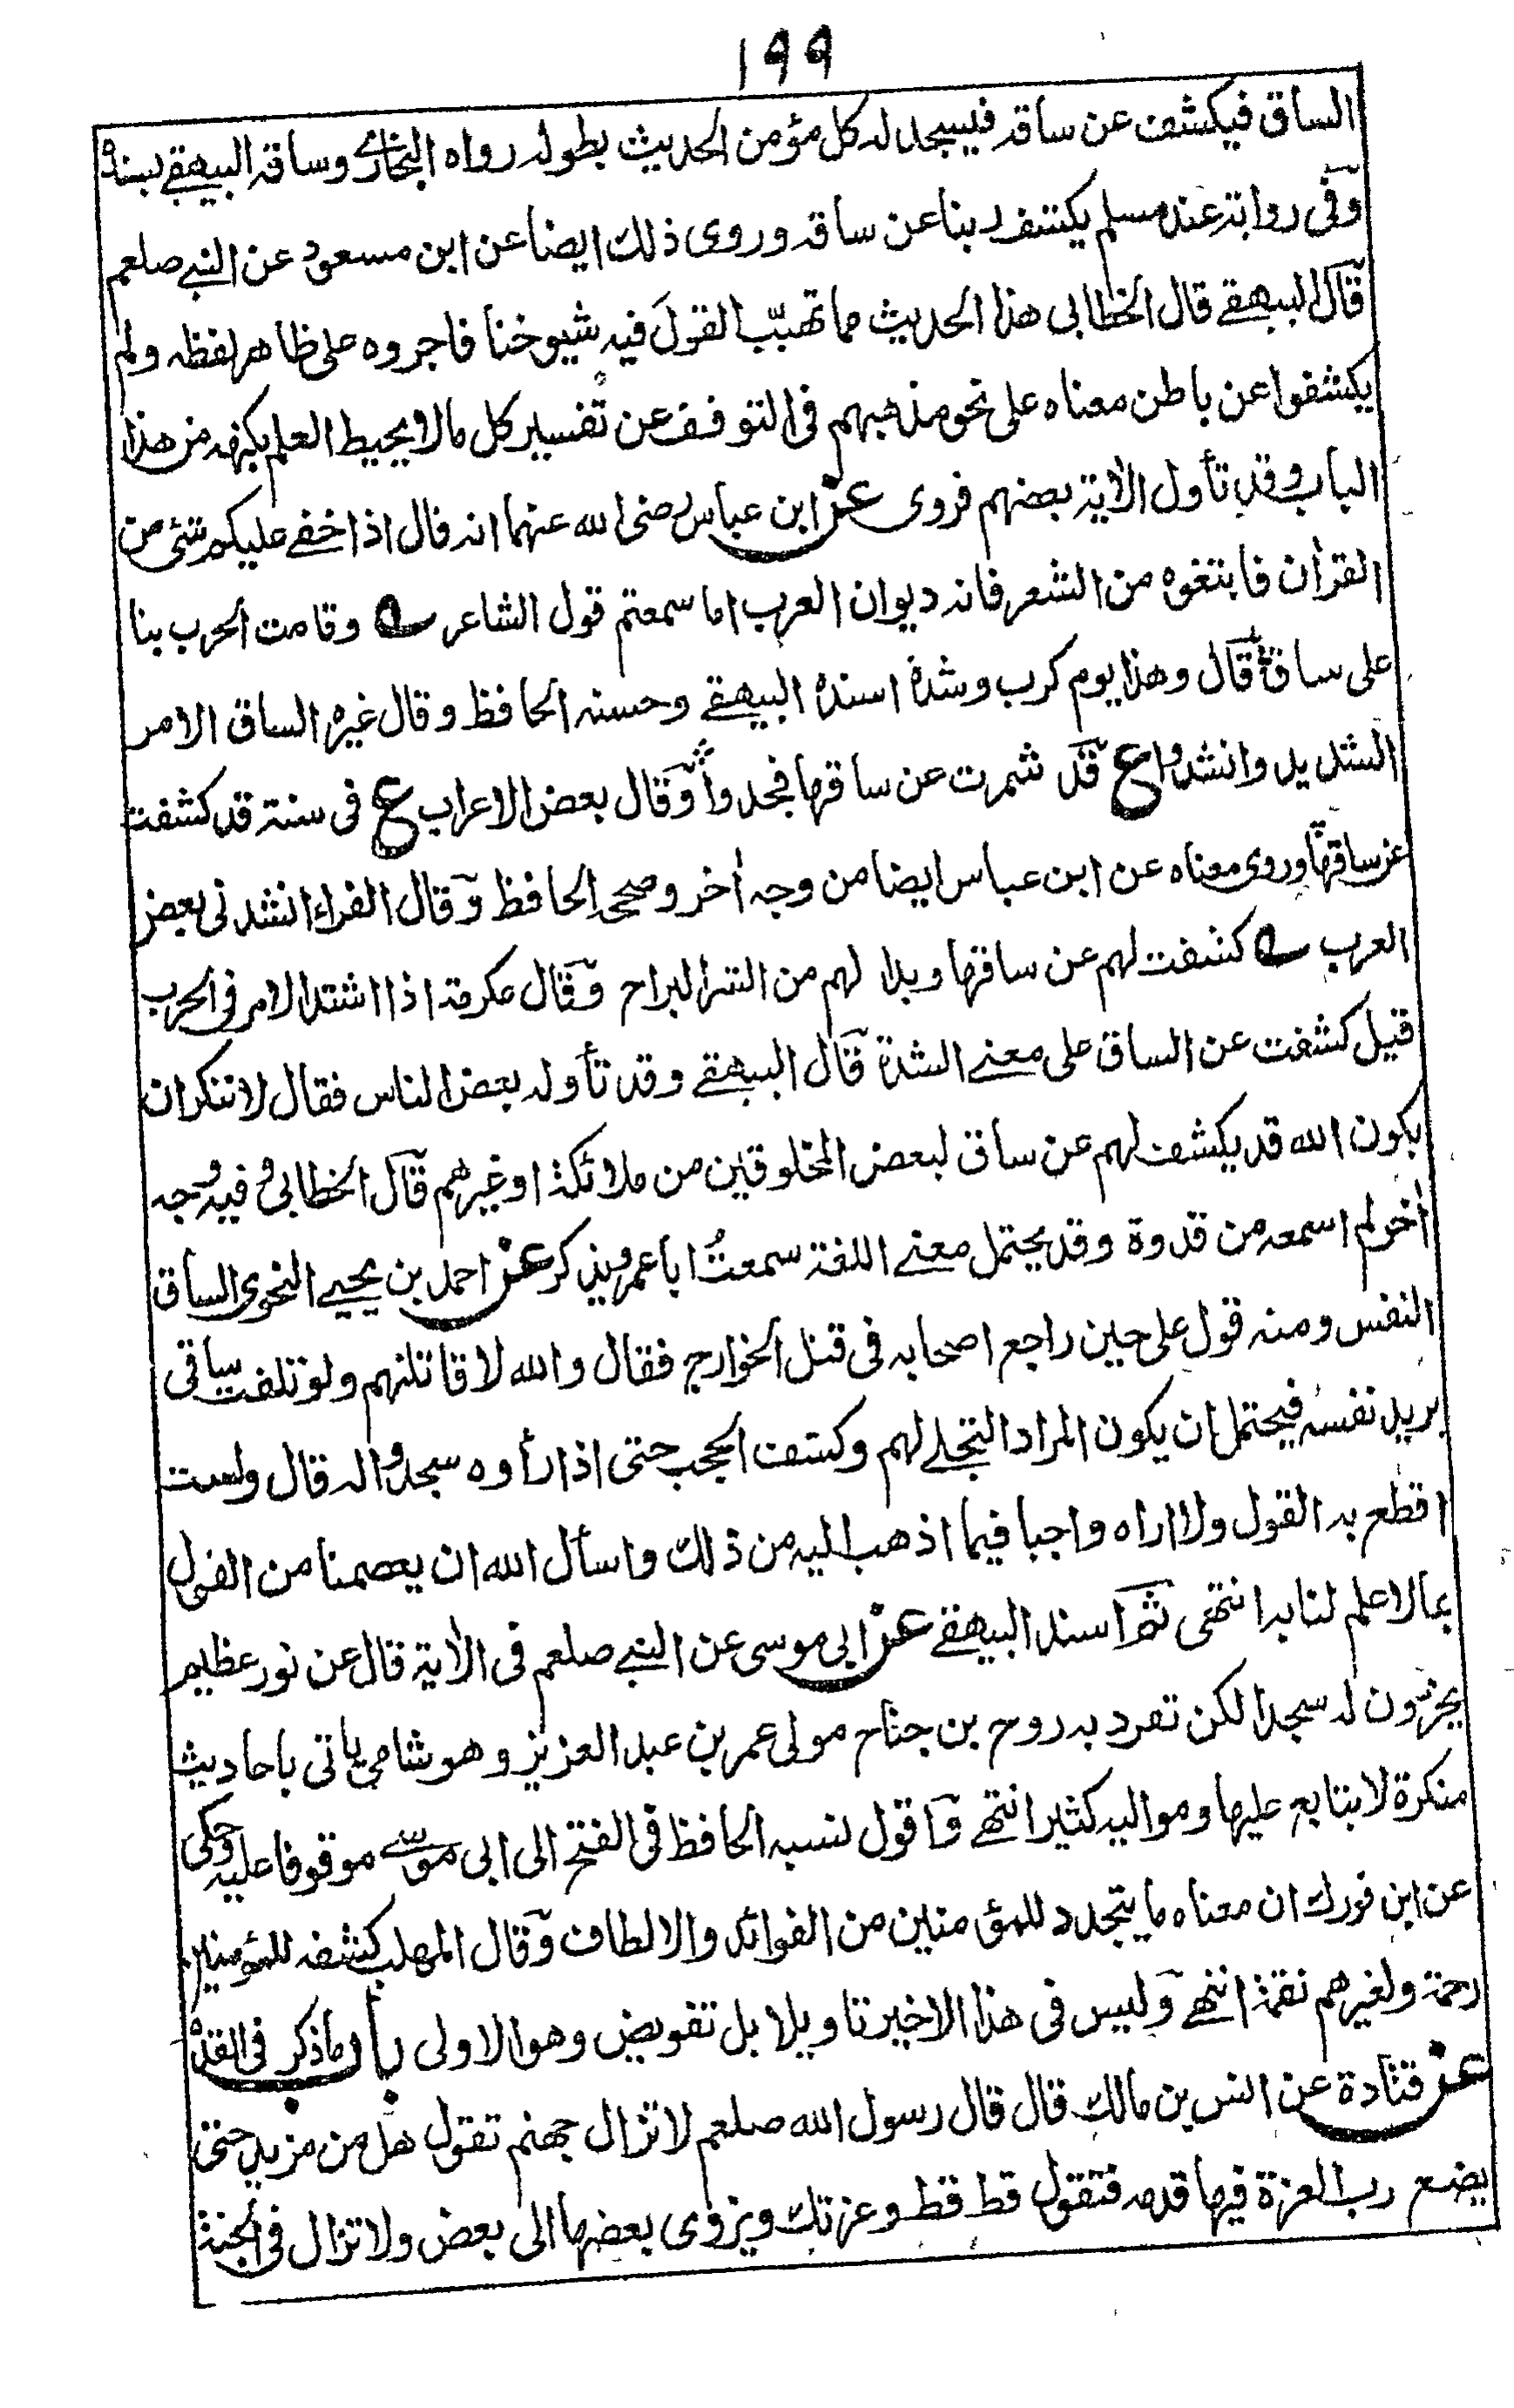 ١٩٩
الساق فيكشف عن ساقه فيسجد له كل مؤمن الحديث بطوله رواه البخاري وساقه البيهقي بسنده
وفى رواية عند مسلم يكشف ربنا عن ساقه وروى ذلك ايضا عن ابن مسعود عن النبي صلعم
قال البيهقي قال الخطابى هذا الحديث مما تهيّب القول فيه شيوخنا فاجروه على ظاهر لفظه ولم
يكشفوا عن باطن معناه على نحو مذهبهم فى التوقف عن تفسير كل مالا يحيط العلم بكنهه من هذا
الباب وقد تأول الآية بعضهم فروى عن ابن عباس رضى الله عنهما انه قال اذا خفے عليكم شئ من
القرآن فابتغوه من الشعر فانه ديوان العرب اما سمعتم قول الشاعر ــه وقامت الحرب بنا
على ساق قال وهذا يوم كرب وشدة اسنده البيهقے وحسنه الحافظ وقال غيره الساق الامر
الشديد وانشدوا ع قد شمرت عن ساقها فجدوا وقال بعض الاعراب ع فى سنة قد كشفت
عن ساقها وروى معناه عن ابن عباس ايضا من وجه آخر وصححه الحافظ وقال الفراء انشدنى بعض
العرب ــه كشفت لهم عن ساقها وبدا لهم من الشر البراح وقال عكرمة اذا اشتد الامر فى الحرب
قيل كشفت عن الساق على معنے الشدة قال البيهقے وقد تأوله بعض الناس فقال لا ننكر ان
يكون الله قد يكشف لهم عن ساق لبعض المخلوقين من ملائكة او غيرهم قال الخطابى وفيه وجه
آخر لم اسمعه من قدوة وقد يحتمل معنے اللغة سمعتُ ابا عمر يذكر عن احمد بن يحيے النحوى الساق
النفس ومنه قول على حين راجع اصحابه فى قتل الخوارج فقال والله لا قاتلنهم ولو تلفت ساقى
يريد نفسه فيحتمل ان يكون المراد التجلے لهم وكشف الحجب حتى اذا رأوه سجدوا له قال ولست
اقطع به القول ولا اراه واجبا فيما اذهب اليه من ذلك واسأل الله ان يعصمنا من القول
بمالا علم لنا به انتهى ثم اسند البيهقے عن ابى موسى عن النبے صلعم فى الآية قال عن نور عظيم
يخرون له سجدا لكن تفرد به روح بن جناح مولى عمر بن عبد العزيز وهو شامي ياتى باحاديث
منكرة لا يتابع عليها ومواليه كثير انتهے واقول لنسبه الحافظ فى الفتح الى ابى موسے موقوفا عليه وحكى
عن ابن فورك ان معناه ما يتجدد للمؤمنين من الفوائد والالطاف وقال المهلب كشفه للمؤمنين
رحمة ولغيرهم نقمة انتهے وليس فى هذا الاخير تاويلا بل تفويض وهو الاولى باب ما ذكر فى القدم
عن قتادة عن انس بن مالك قال قال رسول الله صلعم لا تزال جهنم تقول هل من مزيد حتى
يضع رب العزة فيها قدمه فتقول قط قط وعزتك ويزوى بعضها الى بعض ولا تزال فى الجنة